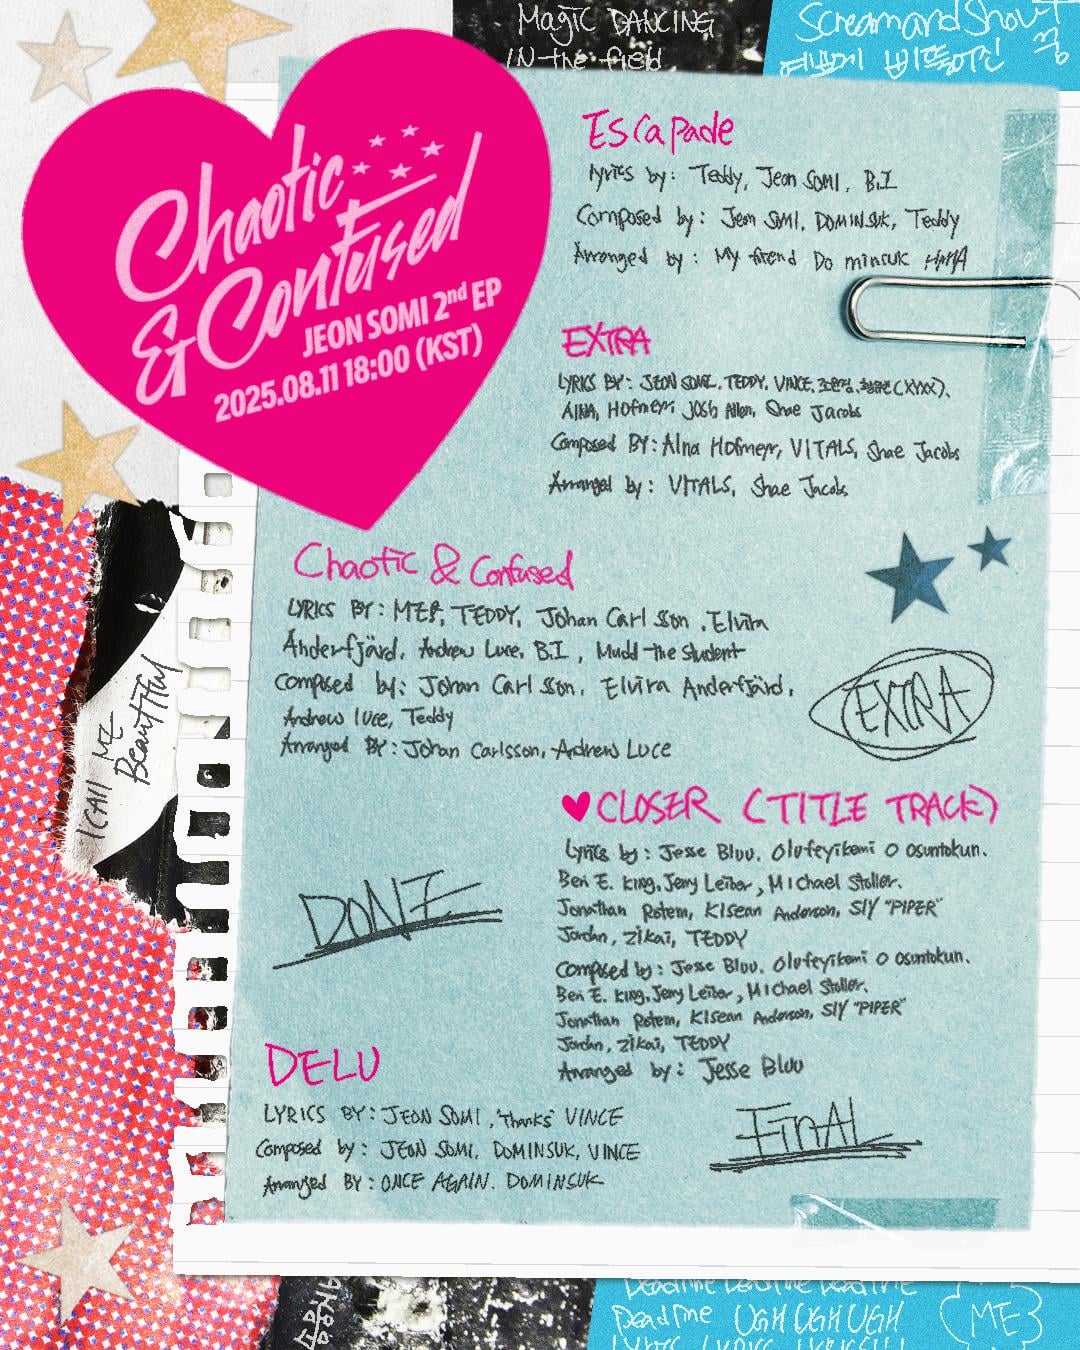 Magic DANCING
IN the field
Scream and Shout
Chaotic
& Confused
JEON SOMI 2nd EP
2025.08.11 18:00 (KST)
Escapade
lyrics by: Teddy, Jeon SOMI. B.I
Composed by: Jeon SOMI. DOMINSUK, Teddy
Arranged by: My friend Do minsuk HAHA
EXTRA
LYRICS BY: JEON SOMI. TEDDY, VINCE. (XYXX),
AINA, Hofmeyr, Josh Allen, Shae Jacobs
Composed BY: AINA Hofmeyr, VITALS, Shae Jacobs
Arranged by: VITALS, Shae Jacobs
Chaotic & Confused
LYRICS BY: TEDDY, Johan Carlsson, Elvira
Anderfjärd. Andrew Luce. B.I, Mudd the Student
Composed by: Johan Carlsson. Elvira Anderfjärd.
Andrew Luce, Teddy
Arranged BY: Johan Carlsson, Andrew Luce
EXTRA
I CALL ME
BEAUTIFUL
♥ CLOSER (TITLE TRACK)
Lyrics by: Jesse Bluu. Olufeyikemi O Osuntokun.
Ben E. King, Jerry Leiber, Michael Stoller.
Jonathan Rotem, Kisean Anderson, SLY "PIPER"
Jordan, Zikai, TEDDY
Composed by: Jesse Bluu. Olufeyikemi O Osuntokun.
Ben E. King, Jerry Leiber, Michael Stoller.
Jonathan Rotem, Kisean Anderson, SLY "PIPER"
Jordan, Zikai, TEDDY
Arranged by: Jesse Bluu
DONE
DELU
LYRICS BY: JEON SOMI, "Thanks" VINCE
Composed by: JEON SOMI. DOMINSUK, VINCE
Arranged BY: ONCE AGAIN. DOMINSUK
FINAL
Deadline Deadline Deadline
Deadline UGH UGH UGH
ME